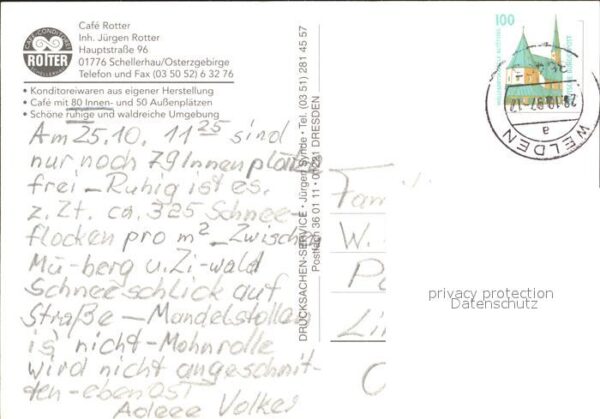 Café Rotter
Inh. Jürgen Rotter
Hauptstraße 96
01776 Schellerhau/Osterzgebirge
Telefon und Fax (03 50 52) 6 32 76
CAFÉ-CONDITOREI
ROTTER
• Konditoreiwaren aus eigener Herstellung
• Café mit 80 Innen- und 50 Außenplätzen
• Schöne ruhige und waldreiche Umgebung
Am 25.10. 11 25 sind
nur noch 79 Innenplätze
frei – Ruhig ist es.
z. Zt. ca. 325 Schnee-
flocken pro m² – Zwischen
Mü-berg u. Zi-wald
Schneeschlick auf
Straße – Mandelstollen
is nicht – Mohnrolle
wird nicht angeschnit-
ten – eben OST
Adeee Volker
DRUCKSACHEN-SERVICE • Jürgen Synde • Tel. (03 51) 281 45 57
Postfach 36 01 11 • 01221 DRESDEN
100
WALLFAHRTSKAPELLE ALTÖTTING
DEUTSCHE BUNDESPOST
WELDEN
a
Fam
W.
Li
privacy protection
Datenschutz